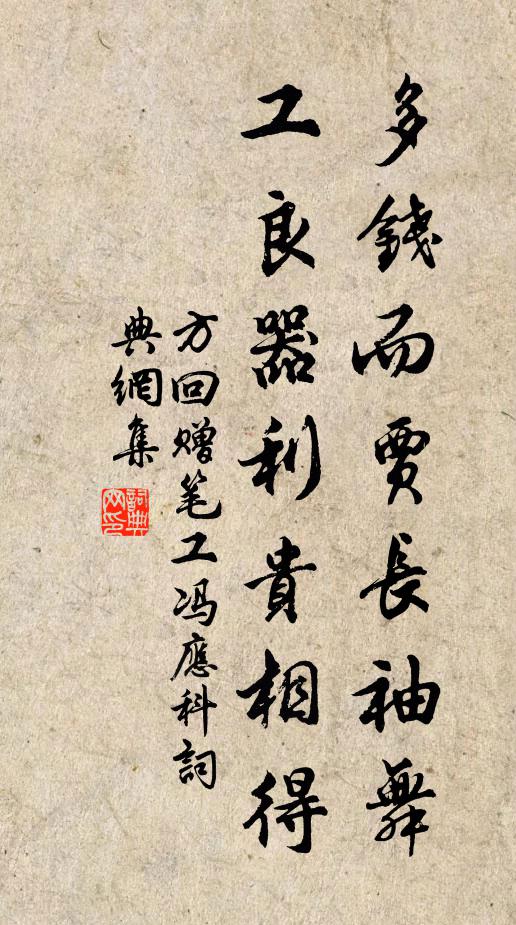 多錢而賈長袖舞
工良器利貴相得
方回赠笔工冯應科詞
典網集
詞典网印